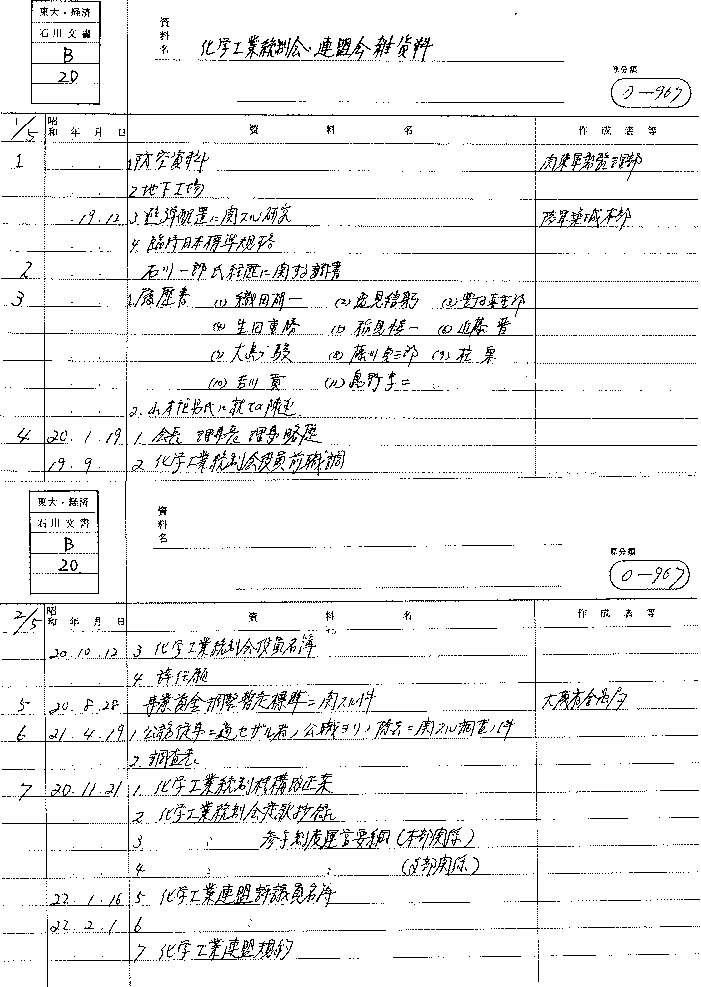 東大・経済
石川文書
B
20
資料名
化学工業統制会・連盟会雑資料
原分類
0-967
1/5 昭和 年 月 日 資料名 作成者等
1 1.防空資料
2.地下工場
19.12 3. ニ関スル研究 陸軍築城本部
4. 臨時日本標準規格
2 石川一郎氏経歴に関する
3 1.履歴書 (1) 織田研一 (2) (3)
(4) 生田重勝 (5) (6) 近藤 晋
(7) 大島 駿 (8) (9)
(10) 吉川 (11)
2.
4 20.1.19 1. 会長 理事長 理事略歴
19.9. 2. 化学工業統制会役員前職調
東大・経済
石川文書
B
20
資料名
原分類
0-967
2/5 昭和 年 月 日 資料名 作成者等
20.10.12 3 化学工業統制会役員名簿
4.
5 20.8.28 資金調整暫定標準ニ関スル件
6 21.4.19 1. 公務従事ニ適セザル者ノ公職ヨリノ除去ニ関スル調査ノ件
2. 調査表
7 20.11.21 1. 化学工業統制機構改正案
2 化学工業統制会定款抄録
3 〃 参与制度運営要綱(本部関係)
4 〃 〃 (支部関係)
22.1.16 5 化学工業連盟評議員名簿
22.2.1 6 〃
7 化学工業連盟規約